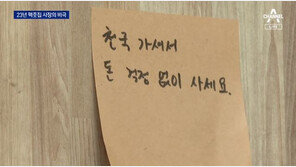 23년 맥줏집 사장의 비극
CHANNEL A
천국 가셔서
돈 걱정 없이 사세요.